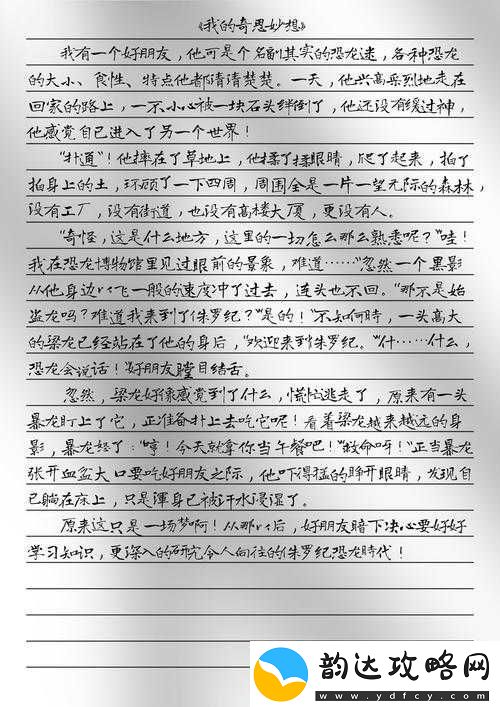 《我的奇思妙想》
我有一个好朋友，他可是个名副其实的恐龙迷，各种恐龙
的大小、食性、特点他都清清楚楚。一天，他兴高采烈地走在
回家的路上，一不小心被一块石头绊倒了，他还没有缓过神，
他感觉自己进入了另一个世界！
“扑通”！他摔在了草地上，他揉了揉眼睛，爬了起来，拍了
拍身上的土，环顾了一下四周，周围全是一片一望无际的森林，
没有工厂，没有街道，也没有高楼大厦，更没有人。
“奇怪，这是什么地方，这里的一切怎么那么熟悉呢？”哇！
我在恐龙博物馆里见过眼前的景象，难道……”忽然一个黑影
从他身边以飞一般的速度冲了过去，连头也不回。“那不是始
盗龙吗？难道我来到了侏罗纪？”“是的！”不知何時，一头高大
的梁龙已经站在了他的身后，“欢迎来到侏罗纪。”什……什么，
恐龙会说话！”好朋友瞠目结舌。
忽然，梁龙好像感觉到了什么，慌忙逃走了，原来有一头
暴龙盯上了它，正准备扑上去吃它呢！看着梁龙越来越远的身
影，暴龙怒了：“哼！今天就拿你当午餐吧！”“救命呀！”正当暴龙
张开血盆大口要吃好朋友之际，他吓得猛的睁开眼睛，发现自
己躺在床上，只是渾身已被汗水浸湿了。
原来这只是一场梦啊！从那以后，好朋友暗下决心要好好
学习知识，更深入的研究令人向往的侏罗纪恐龙時代！
韵达攻略网
www.ydfcy.com